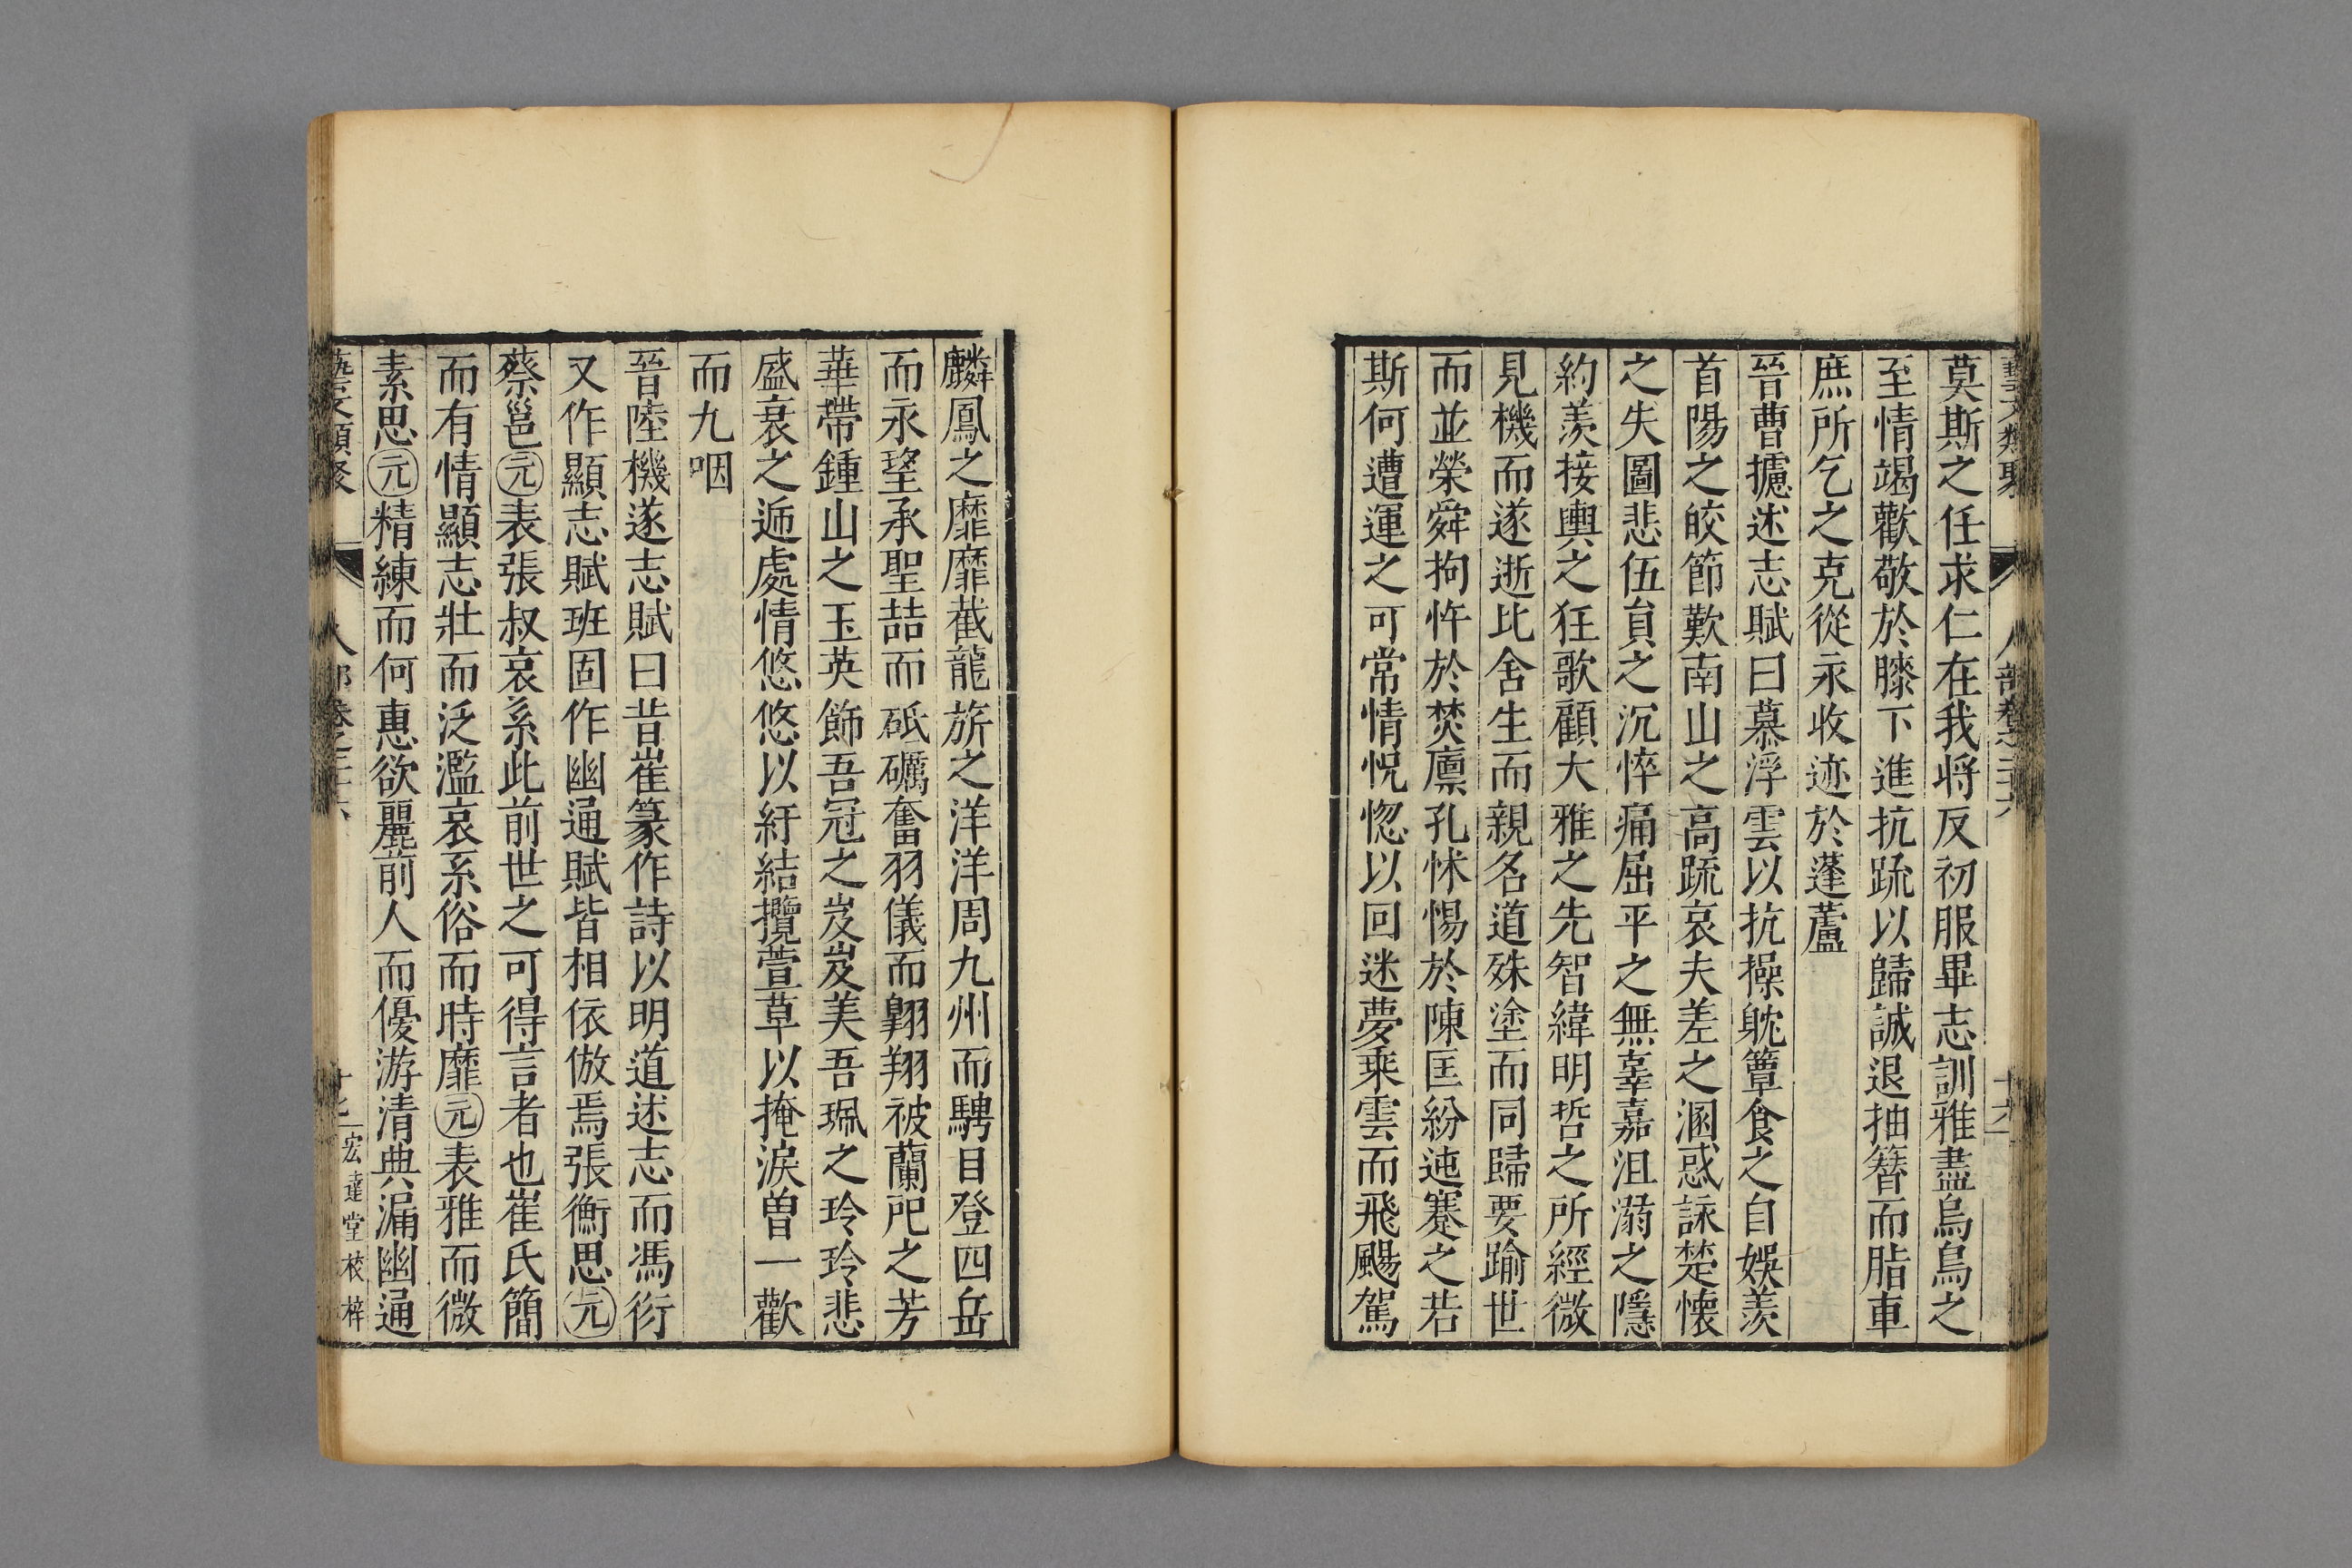 藝文類聚 人部卷之二十六 十六
莫斯之任求仁在我將反初服畢志訓雅盡烏鳥之
至情竭歡敬於膝下進抗疏以歸誠退抽簪而脂車
庶所乞之克從永收迹於蓬蘆
晉曹攄述志賦曰慕浮雲以抗操躭簞食之自娛羨
首陽之皎節歎南山之高疏哀夫差之溷惑詠楚懷
之失圖悲伍員之沉悴痛屈平之無辜嘉沮溺之隱
約羨接輿之狂歌顧大雅之先智緯明哲之所經微
見機而遂逝比舍生而親名道殊塗而同歸要踰世
而並榮舜拘忤於焚廩孔怵惕於陳匡紛迍蹇之若
斯何遭運之可常情怳惚以回迷夢乘雲而飛颺駕
麟鳳之靡靡載龍旂之洋洋周九州而騁目登四岳
而永望承聖喆而砥礪奮羽儀而翱翔被蘭芷之芳
華帶鍾山之玉英飾吾冠之岌岌美吾珮之玲玲悲
盛衰之遞處情悠悠以紆結攬萱草以掩淚曾一歡
而九咽
晉陸機遂志賦曰昔崔篆作詩以明道述志而馮衍
又作顯志賦班固作幽通賦皆相依倣焉張衡思元
蔡邕元表張叔哀系此前世之可得言者也崔氏簡
而有情顯志壯而泛濫哀系俗而時靡元表雅而微
素思元精練而何惠欲麗前人而優游清典漏幽通
藝文類聚 人部卷之二十六 十七 宏達堂校梓